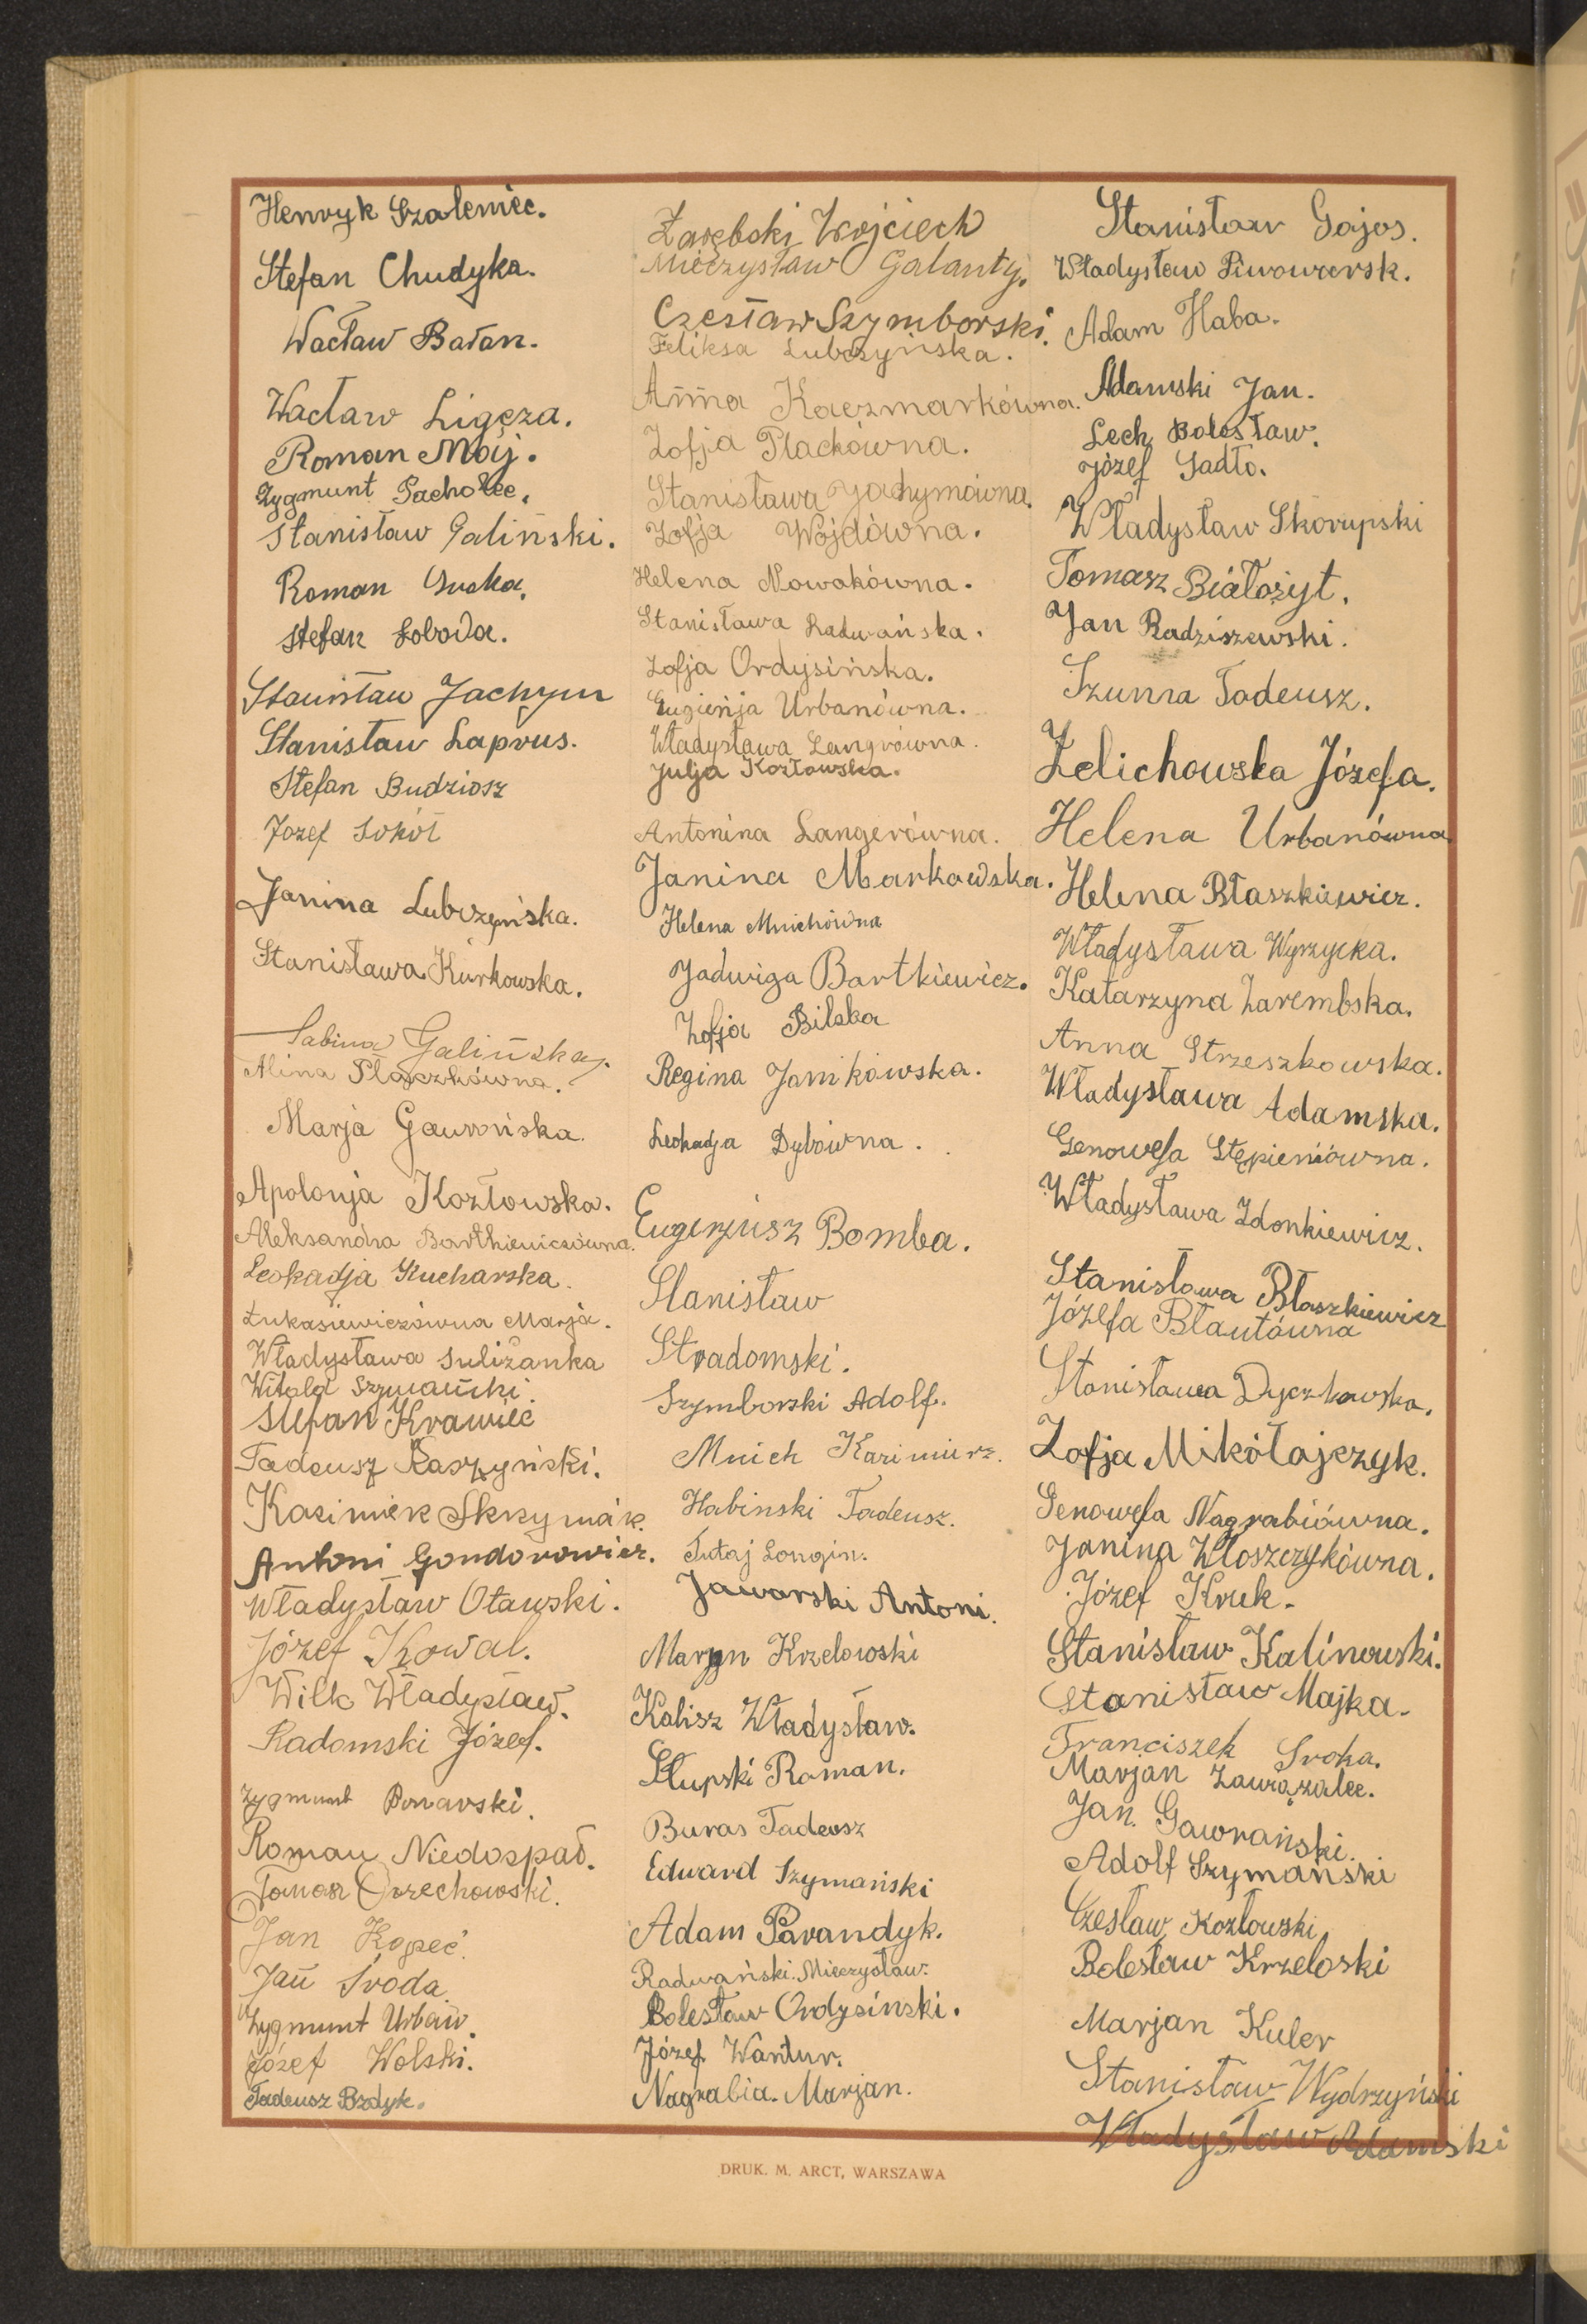 Henryk Szaleniec.
Stefan Chudyka.
Wacław Baran.
Wacław Ligęza.
Roman Mój.
Zygmunt Pacholec.
Stanisław Galiński.
Roman Sroka.
Stefan Łoboda.
Stanisław Jachym
Stanisław Laprus.
Stefan Budziosz
Józef Sokół
Janina Lubczyńska.
Stanisława Kurkowska.
Sabina Galińska.
Alina Płaczkówna.
Marja Gawrońska.
Apolonja Kozłowska.
Aleksandra Bartkiewiczówna.
Leokadja Kucharska.
Łukasiewiczówna Marja.
Władysława Suliżanka
Witold Szymański.
Stefan Krawiec
Tadeusz Raszyński.
Kazimierz Skrzyniarz.
Antoni Gondorowicz.
Władysław Otawski.
Józef Kowal.
Wilk Władysław.
Radomski Józef.
Zygmunt Ponarski.
Roman Niedospał.
Roman Orzechowski.
Jan Kopeć.
Jan Sroda.
Zygmunt Urban.
Józef Wolski.
Tadeusz Bzdyk.
Zarębski Wojciech
Mieczysław Galanty.
Czesław Szymborski.
Feliksa Lubczyńska.
Anna Kaczmarkówna.
Zofja Płachówna.
Stanisława Jachymówna.
Zofja Wójdówna.
Helena Nowakówna.
Stanisława Radwańska.
Zofja Ordysińska.
Eugienja Urbanówna.
Władysława Langrówna.
Julja Kozłowska.
Antonina Langerówna.
Janina Markowska.
Helena Mnichówna
Jadwiga Bartkiewicz.
Zofja Bilska
Regina Janikowska.
Leokadja Dybówna.
Eugenjusz Bomba.
Stanisław
Stradomski.
Szymborski Adolf.
Mnich Kazimierz.
Habinski Tadeusz.
Tutaj Longin.
Jaworski Antoni.
Maryn Krzelowski
Kalisz Władysław.
Słupski Roman.
Buras Tadeusz
Edward Szymański
Adam Parandyk.
Radwański. Mieczysław.
Bolesław Ordysiński.
Józef Wantur.
Nagrabia. Marjan.
Stanisław Gajos.
Władysław Piwowarsk.
Adam Haba.
Adamski Jan.
Lech Bolesław.
Józef Sadło.
Władysław Skorupski
Tomasz Białożyt.
Jan Radziszewski.
Szumra Tadeusz.
Zelichowska Józefa.
Helena Urbanówna
Helena Błaszkiewicz.
Władysława Wyrzycka.
Katarzyna Zarembska.
Anna Strzeszkowska.
Władysława Adamska.
Genowefa Stępieniówna.
Władysława Zdonkiewicz.
Stanisława Błaszkiewicz
Józefa Blautówna
Stanisława Dyczkowska.
Zofja Mikołajczyk.
Genowefa Nagrabiówna.
Janina Włoszczykówna.
Józef Kruk.
Stanisław Kalinowski.
Stanisław Majka.
Franciszek Sroka.
Marjan Zawiązalec.
Jan. Gawrański.
Adolf Szymański
Czesław Kozłowski
Bolesław Krzeloski
Marjan Kuler
Stanisław Wydrzyński
Władysław Adamski
DRUK. M. ARCT, WARSZAWA